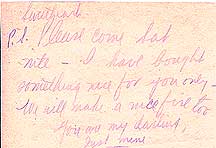 Sweetheart
P.S. Please come Sat
nite – I have bought
something nice for you only –
We will make a nice fire too
You are my darling,
Just mine